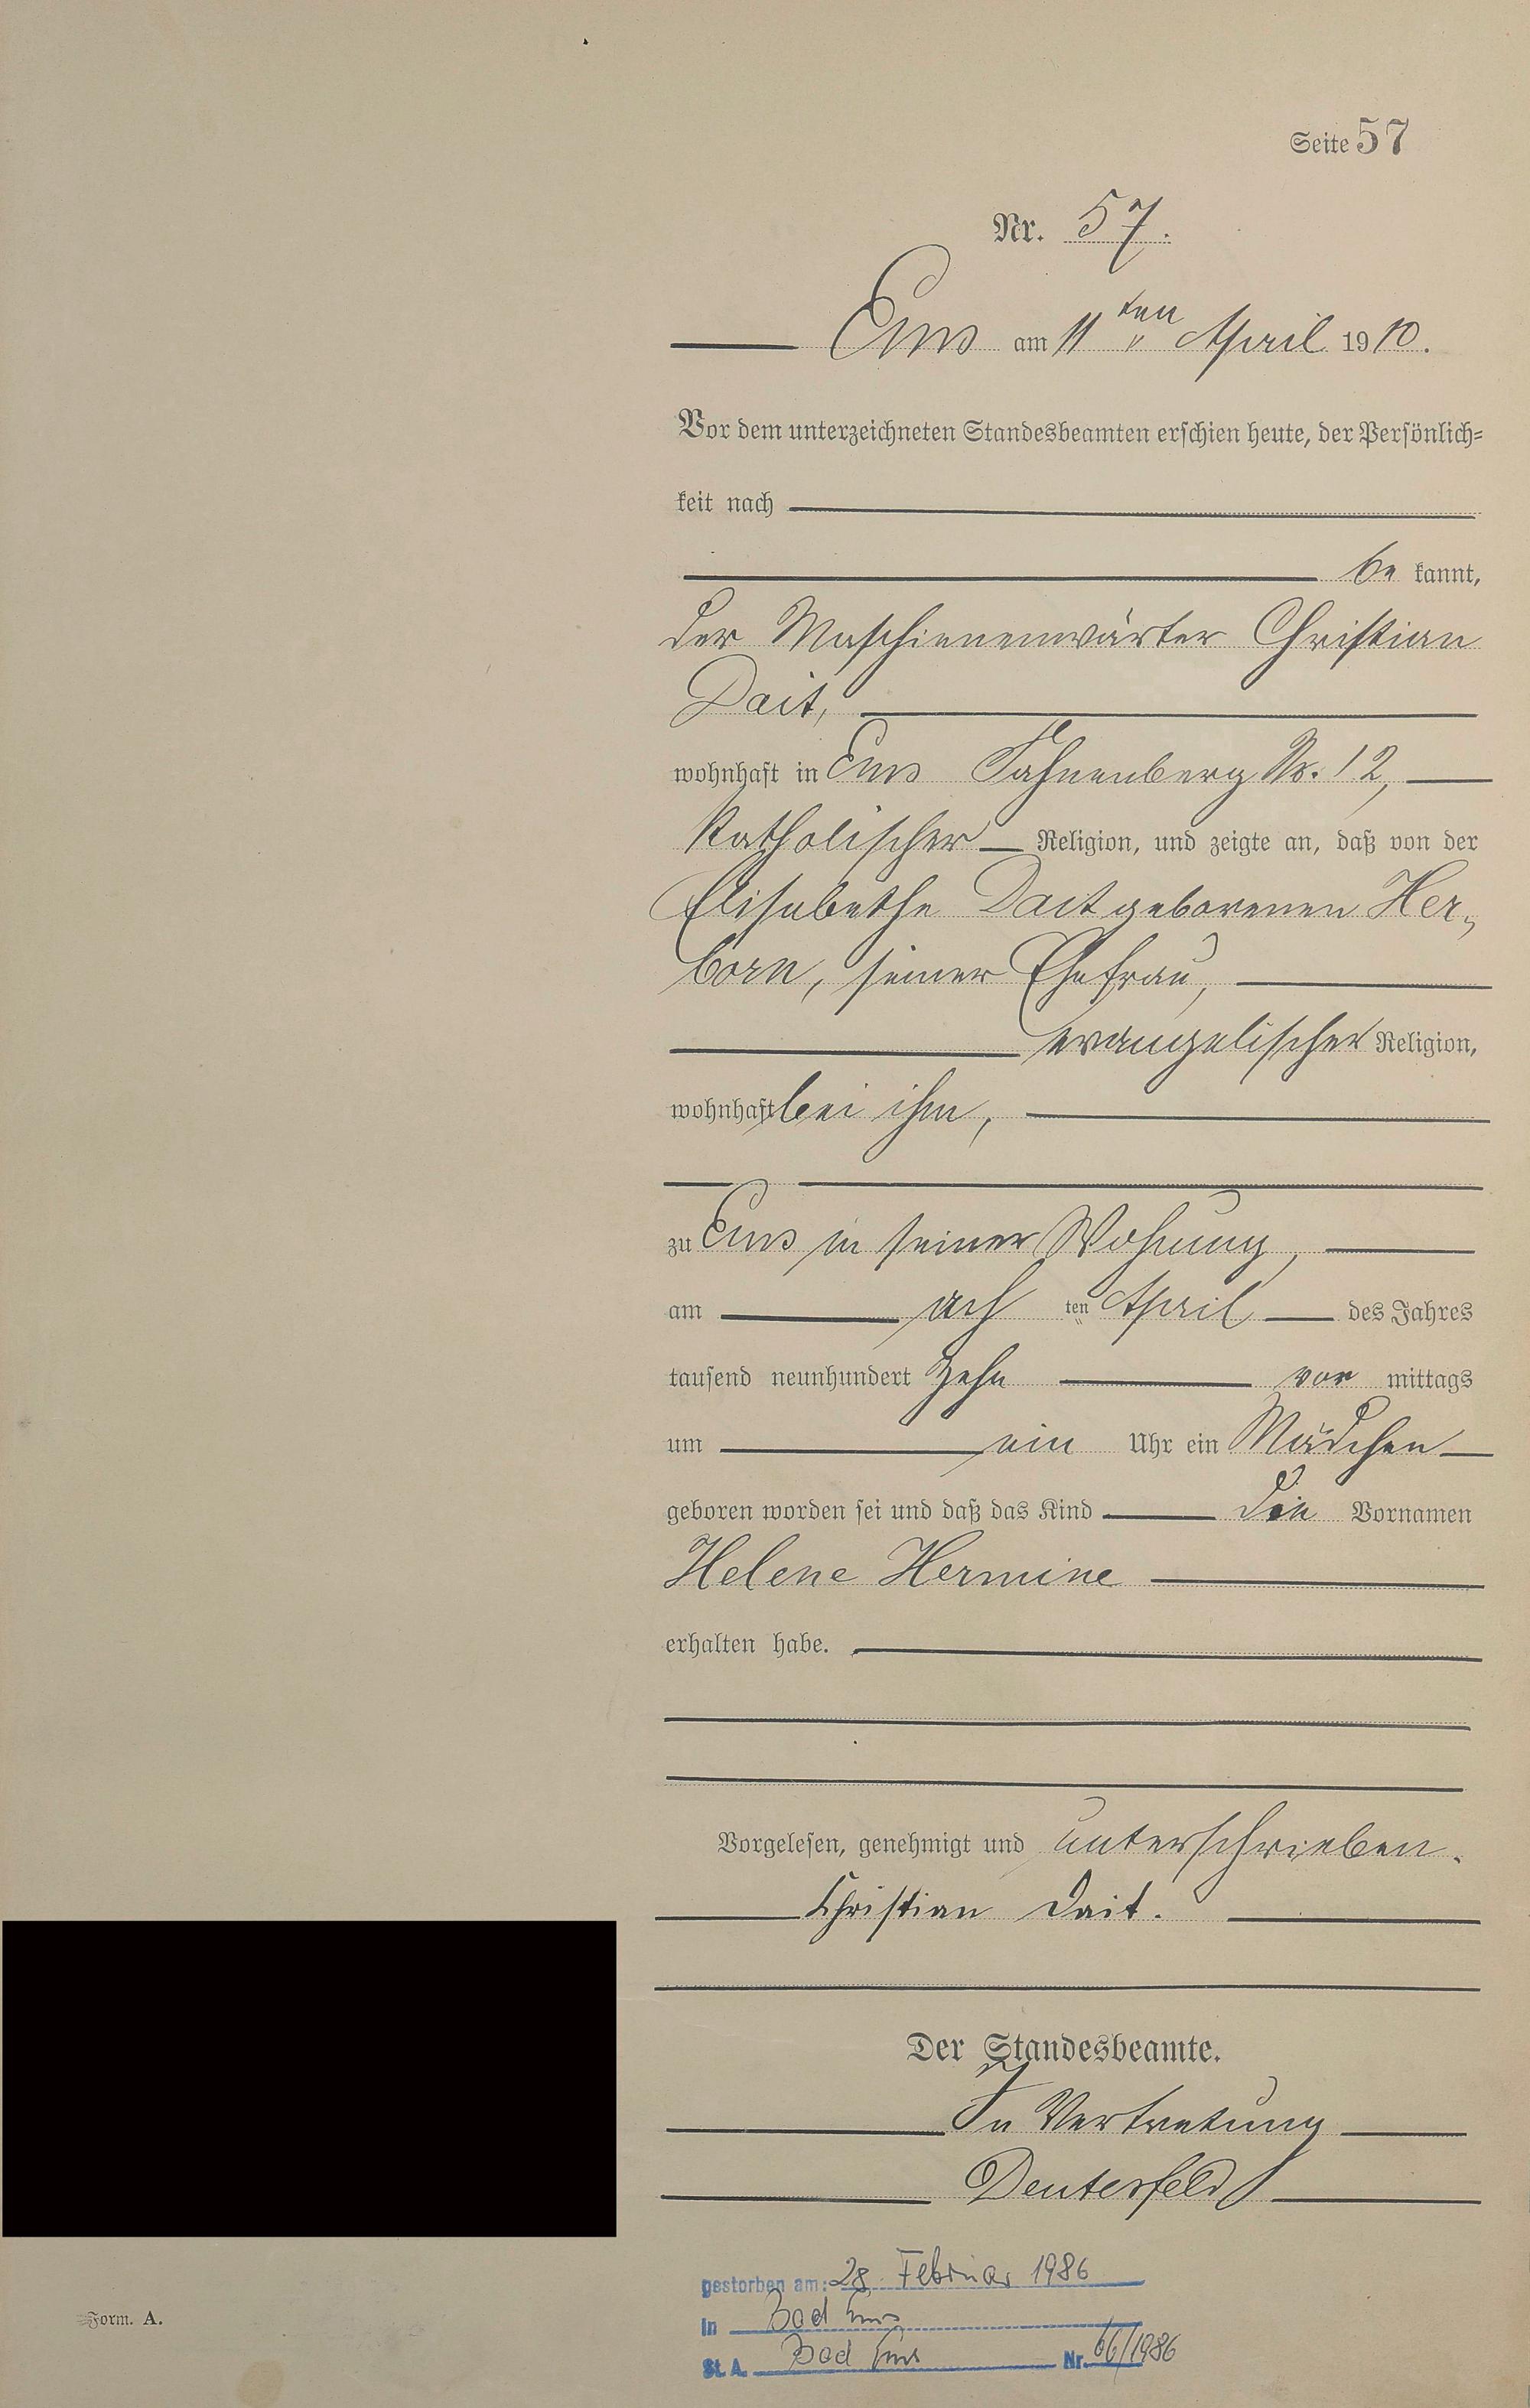 Seite 57
Nr. 57.
Ems am 11ten April 1910.
Vor dem unterzeichneten Standesbeamten erschien heute, der Persönlich=
keit nach
be kannt,
der Maschienenwärter Christian
Dait,
wohnhaft in Ems Fahnenberg No. 12,
Katholischer Religion, und zeigte an, daß von der
Elisabethe Dait geborenen Her-
born, seiner Ehefrau,
evangelischer Religion,
wohnhaft bei ihm,
zu Ems in seiner Wohnung,
am ach ten April des Jahres
tausend neunhundert zehn vor mittags
um ein Uhr ein Mädchen
geboren worden sei und daß das Kind die Vornamen
Helene Hermine
erhalten habe.
Vorgelesen, genehmigt und unterschrieben.
Christian Dait.
Der Standesbeamte.
In Vertretung
Deuterfeld
gestorben am: 28. Februar 1986
in Bad Ems
St. A. Bad Ems Nr. 66/1986
Form. A.